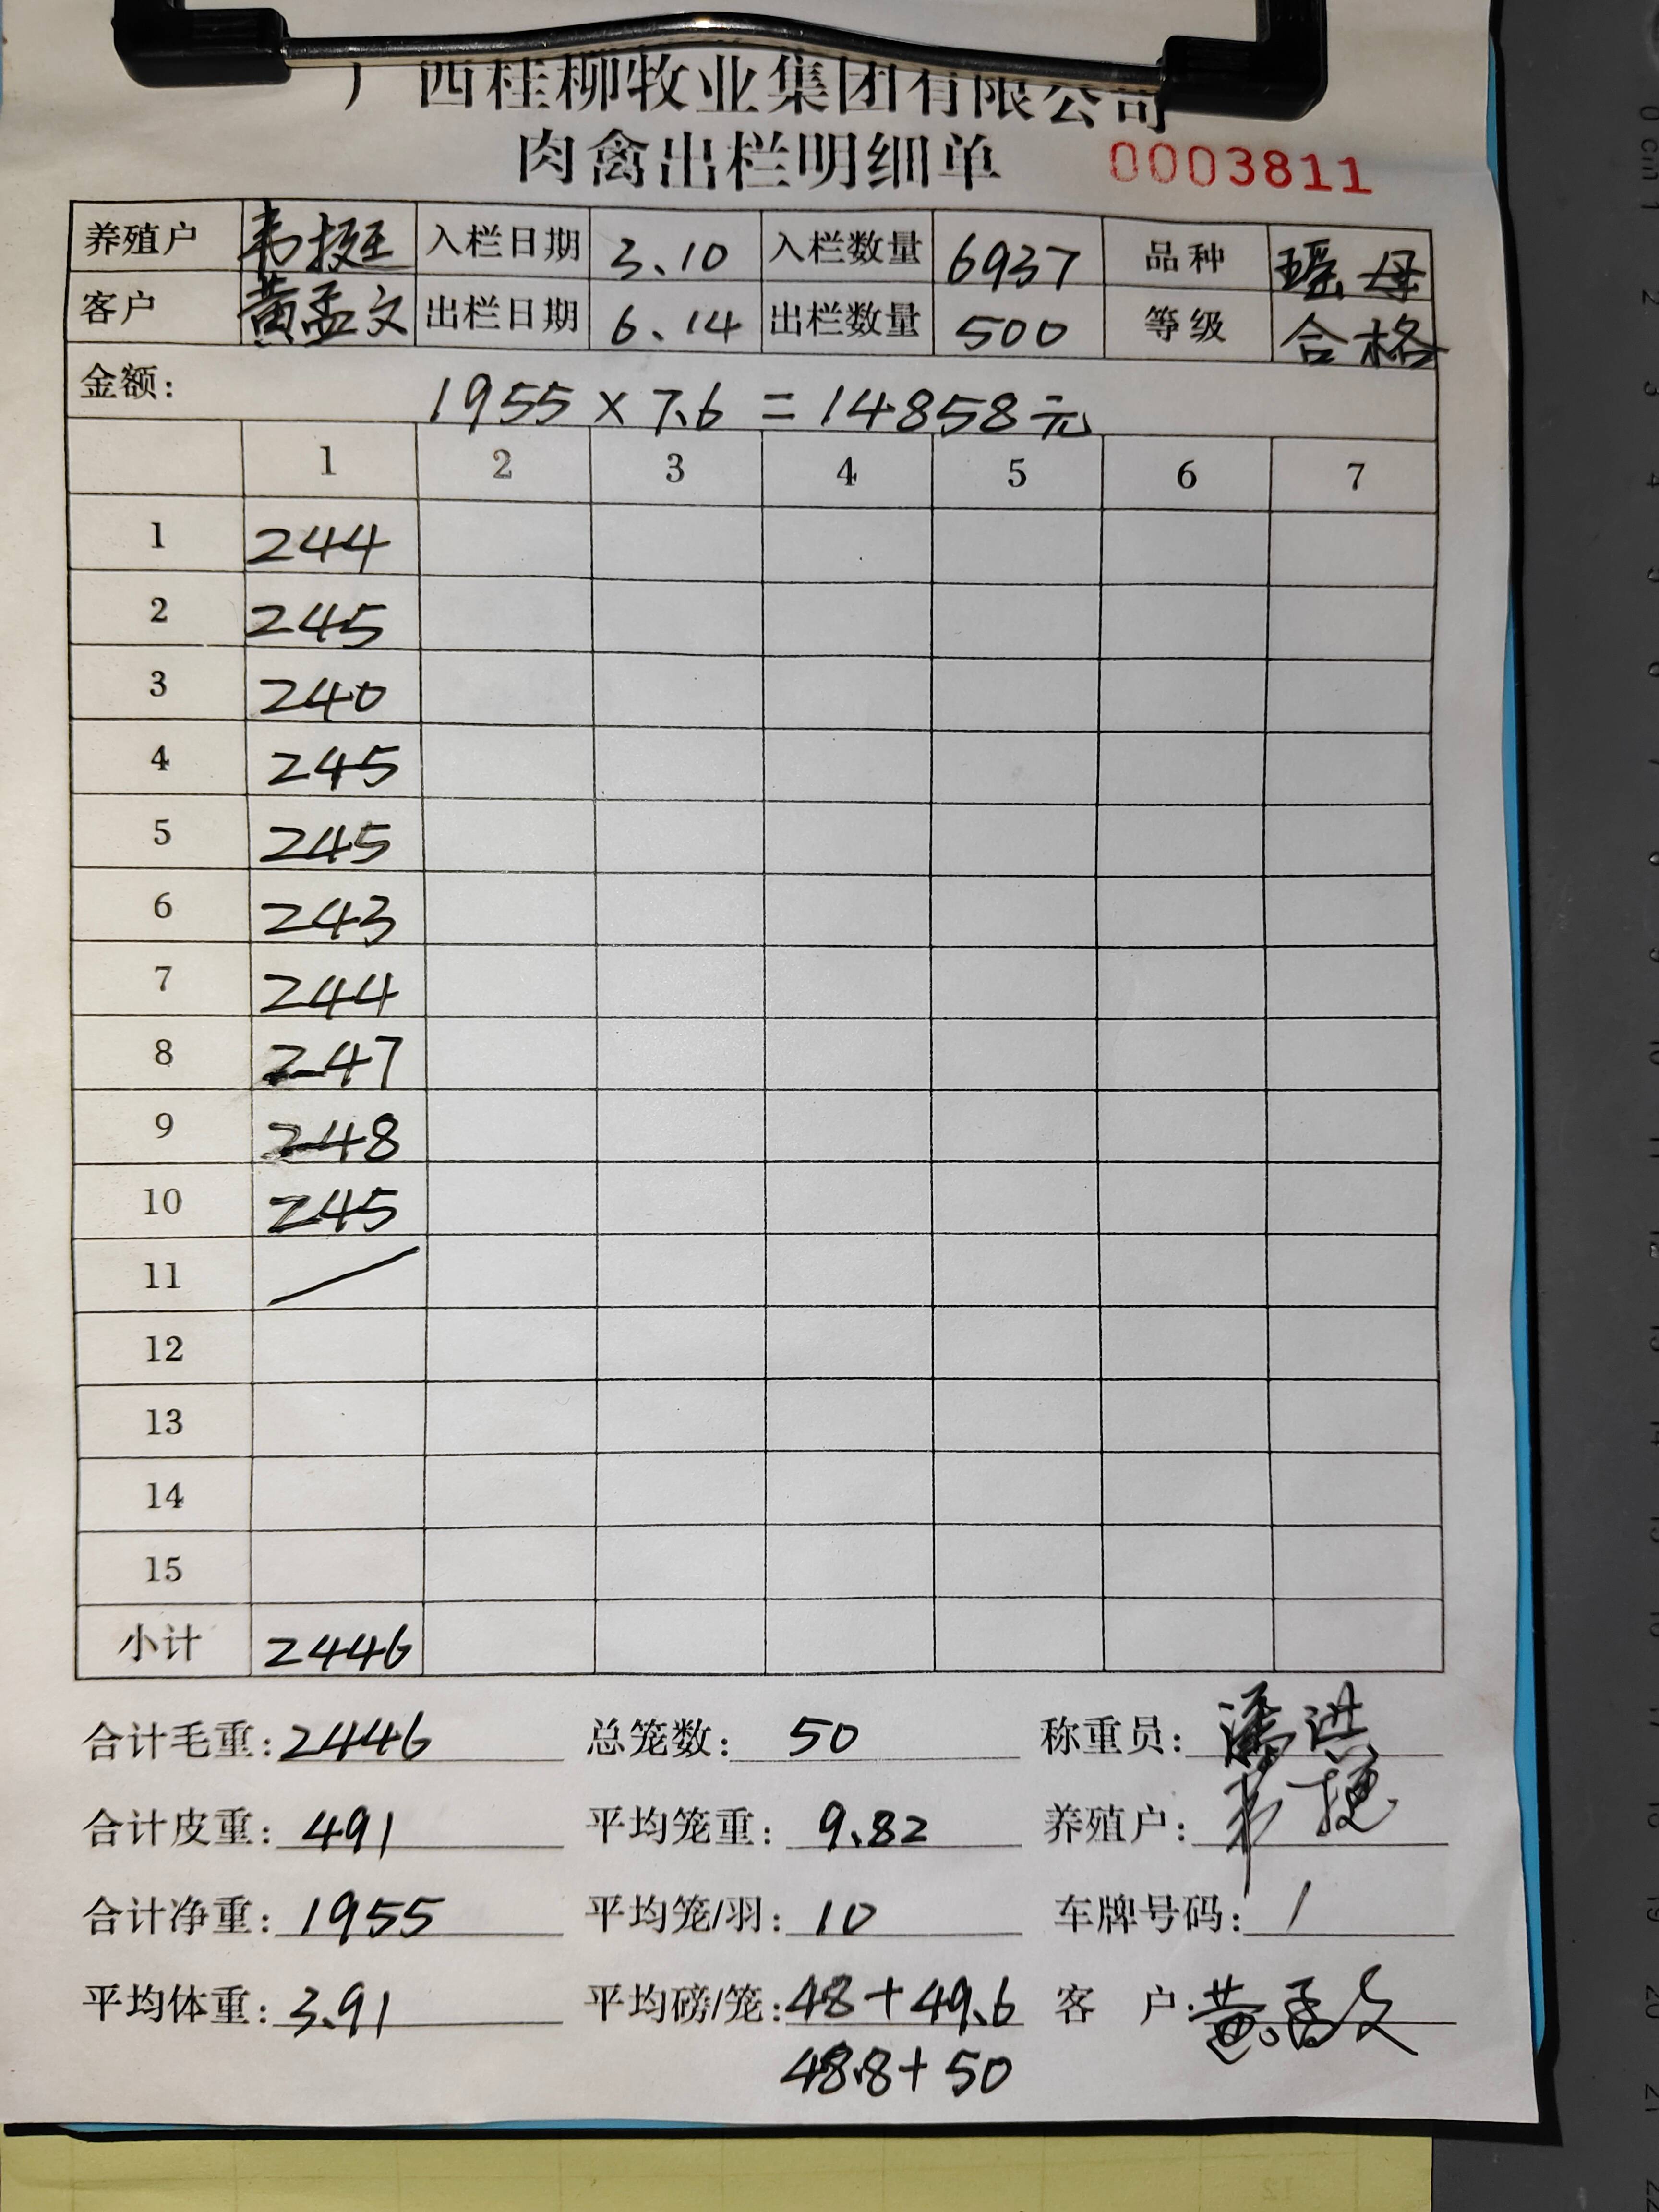 广西桂柳牧业集团有限公司
肉禽出栏明细单 0003811
养殖户 韦挺 入栏日期 3.10 入栏数量 6937 品种 瑶母
客户 黄孟文 出栏日期 6.14 出栏数量 500 等级 合格
金额: 1955×7.6=14858元
1 2 3 4 5 6 7
1 244
2 245
3 240
4 245
5 245
6 243
7 244
8 247
9 248
10 245
11 /
12
13
14
15
小计 2446
合计毛重: 2446 总笼数: 50 称重员:
合计皮重: 491 平均笼重: 9.82 养殖户: 韦挺
合计净重: 1955 平均笼/羽: 10 车牌号码: /
平均体重: 3.91 平均磅/笼: 48+49.6 客 户: 黄孟文
48.8+50
0 cm 1 2 3 4 5 6 7 8 9 10 11 12 13 14 15 16 17 18 19 20 21 22
12